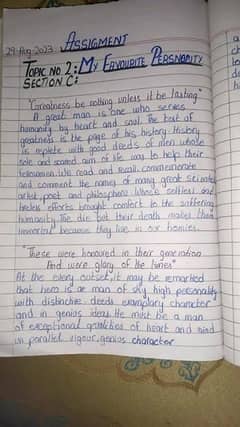 29-Aug-2023 ASSIGMENT
TOPIC NO. 2: MY FAVOURITE PERSNOLITY
SECTION C:
"Greatness be nothing unless it be lasting"
A great man is one who serves
humanity by heart and soul. The test of
greatness is the page of his history. History
is replete with good deeds of men whose
sole and soared aim of life was to help their
fellowmen. We read and recall, commemorate
and comment the names of many great scientist
artist, poet and philosophers whose selfless and
tireless efforts brought comfort to the suffering
humanity. The die but their death makes them
immortal because they live in our homies.
"These were honoured in their generation
And were glory of the times"
At the every outset, it may be remarked
that hero is a man of sky high personality
with distinctive deeds exemplary character
and in genius ideas. He must be a man
of exceptional qualities of heart and mind
un parallel vigour, genius character